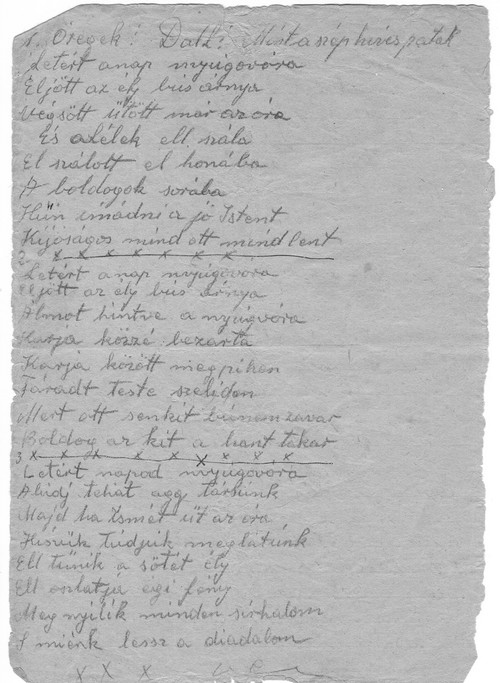 1. Öregek! Dall! Mint a szép hives patak
Letért a nap nyúgovóra
Eljött az éj bús árnya
Végsött ütött már az óra
És a Lélek ell szála
El szálott el honába
A boldogok sorába
Hün imádni a jó Istent
Kijóságos mind ott mind lent
2 x x x x x x x
Letért a nap nyúgovóra
Eljött az ély bús árnya
Álmot hintve a nyúgvóra
Karja közzé bezárta
Karja között megpihen
Fáradt teste szeliden
Mert ott senkit bú nem zavar
Boldog az kit a hant takar
3 x x x x x x x x
Letért napod nyúgovóra
Alúdj tehát agg társúnk
Majd ha Ismét üt az óra
Hisüük túdjuk meglátúnk
Ell tűnik a sötét ély
Ell oszlatja égi fény
Meg nyílik minden sírhalom
S miénk lessz a diadalom
x x x